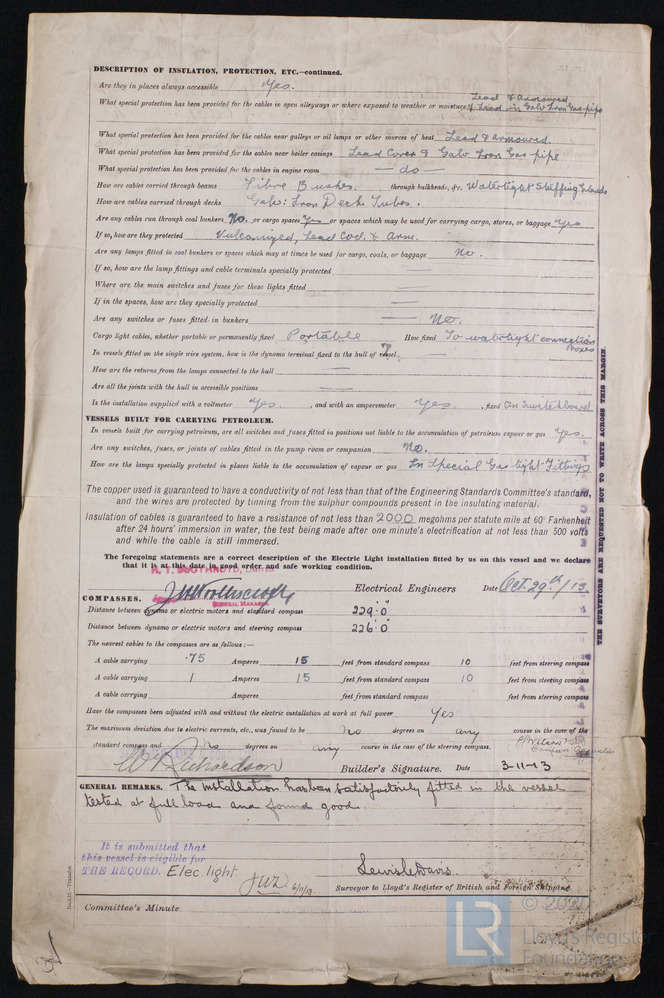 DESCRIPTION OF INSULATION, PROTECTION, ETC.—continued.
Are they in places always accessible Yes.
Lead & armoured
What special protection has been provided for the cables in open alleyways or where exposed to weather or moisture & Lead in Galv Iron Gas pipe
What special protection has been provided for the cables near galleys or oil lamps or other sources of heat Lead & armoured.
What special protection has been provided for the cables near boiler casings Lead Cover & Galv Iron Gas pipe
What special protection has been provided for the cables in engine room — do —
How are cables carried through beams Fibre Bushes. through bulkheads, &c. Watertight Stuffing Glands
How are cables carried through decks Galv: Iron Deck Tubes.
Are any cables run through coal bunkers No. or cargo spaces Yes or spaces which may be used for carrying cargo, stores, or baggage Yes
If so, how are they protected Vulcanized, Lead Cod. & Arm.
Are any lamps fitted in coal bunkers or spaces which may at times be used for cargo, coals, or baggage No.
If so, how are the lamp fittings and cable terminals specially protected —
Where are the main switches and fuses for these lights fitted —
If in the spaces, how are they specially protected —
Are any switches or fuses fitted in bunkers — No.
Cargo light cables, whether portable or permanently fixed Portable How fixed To watertight connection boxes
In vessels fitted on the single wire system, how is the dynamo terminal fixed to the hull of vessel —
How are the returns from the lamps connected to the hull —
Are all the joints with the hull in accessible positions —
Is the installation supplied with a voltmeter Yes. , and with an amperemeter Yes. , fixed On Switchboard
VESSELS BUILT FOR CARRYING PETROLEUM.
In vessels built for carrying petroleum, are all switches and fuses fitted in positions not liable to the accumulation of petroleum vapour or gas Yes.
Are any switches, fuses, or joints of cables fitted in the pump room or companion No.
How are the lamps specially protected in places liable to the accumulation of vapour or gas In Special Gas tight Fittings
The copper used is guaranteed to have a conductivity of not less than that of the Engineering Standards Committee's standard,
and the wires are protected by tinning from the sulphur compounds present in the insulating material.
Insulation of cables is guaranteed to have a resistance of not less than 2000 megohms per statute mile at 60° Farhenheit
after 24 hours' immersion in water, the test being made after one minute's electrification at not less than 500 volts
and while the cable is still immersed.
The foregoing statements are a correct description of the Electric Light installation fitted by us on this vessel and we declare
that it is at this date in good order and safe working condition.
Electrical Engineers Date Oct. 29th /13.
GENERAL MANAGER.
COMPASSES.
Distance between dynamo or electric motors and standard compass 229' 0"
Distance between dynamo or electric motors and steering compass 226' 0"
The nearest cables to the compasses are as follows:—
A cable carrying .75 Amperes 15 feet from standard compass 10 feet from steering compass
A cable carrying 1 Amperes 15 feet from standard compass 10 feet from steering compass
A cable carrying Amperes feet from standard compass feet from steering compass
Have the compasses been adjusted with and without the electric installation at work at full power Yes
The maximum deviation due to electric currents, etc., was found to be no degrees on any course in the case of the
standard compass and no degrees on any course in the case of the steering compass.
W Richardson Builder's Signature. Date 3-11-13
GENERAL REMARKS. The installation has been satisfactorily fitted in the vessel
tested at full load and found good.
It is submitted that
this vessel is eligible for
THE RECORD. Elec light.
6/11/13
Lewis Davis
Surveyor to Lloyd's Register of British and Foreign Shipping.
Committee's Minute
THE SURVEYORS ARE REQUESTED NOT TO WRITE ACROSS THIS MARGIN.
LR
Lloyd's Register
Foundation